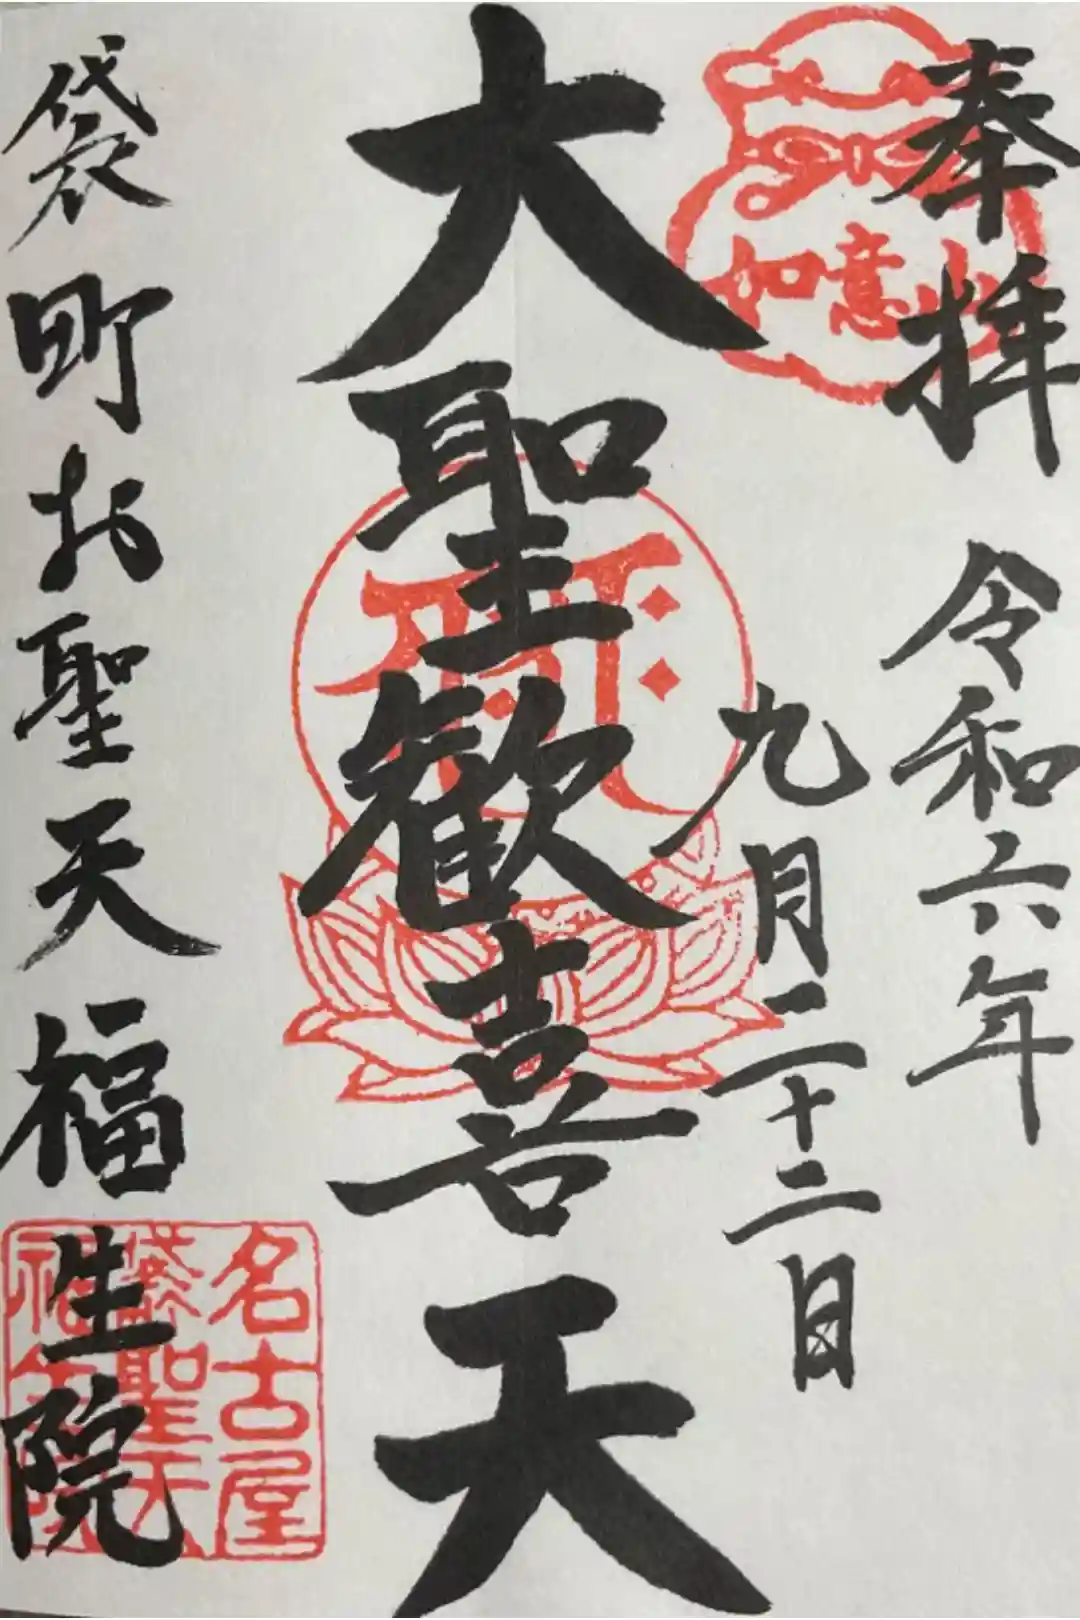 奉拝
令和六年
九月二十二日
大聖歓喜天
袋町お聖天
福生院
如意山
名古屋
袋聖天
福生院